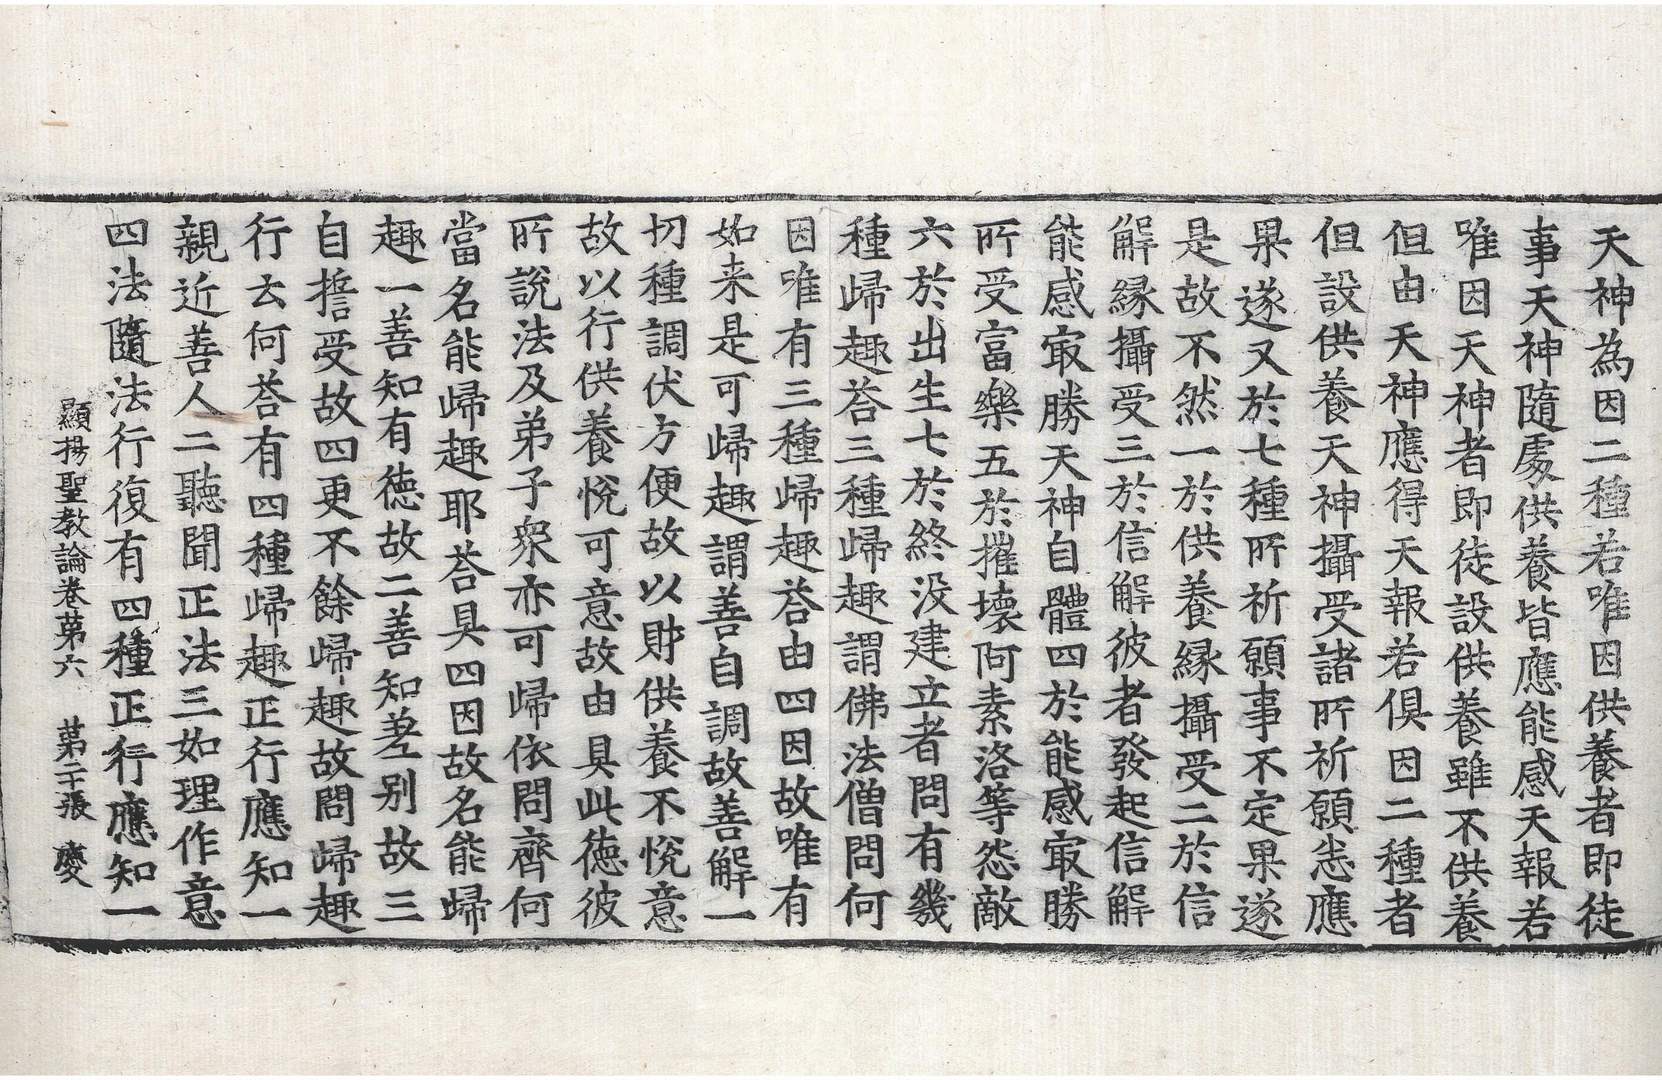 天神為因二種若唯因供養者即徒
事天神隨處供養皆應能感天報若
唯因天神者即徒設供養雖不供養
但由天神應得天報若俱因二種者
但設供養天神攝受諸所祈願悉應
果遂又於七種所祈願事不定果遂
是故不然一於供養緣攝受二於信
解緣攝受三於信解彼者發起信解
能感㝡勝天神自體四於能感㝡勝
所受富樂五於摧壞阿素洛等怨敵
六於出生七於終没建立者問有幾
種歸趣荅三種歸趣謂佛法僧問何
因唯有三種歸趣荅由四因故唯有
如来是可歸趣謂善自調故善解一
切種調伏方便故以財供養不悅意
故以行供養悅可意故由具此德彼
所說法及弟子衆亦可歸依問齊何
當名能歸趣耶荅具四因故名能歸
趣一善知有德故二善知差别故三
自誓受故四更不餘歸趣故問歸趣
行云何荅有四種歸趣正行應知一
親近善人二聽聞正法三如理作意
四法隨法行復有四種正行應知一
顯揚聖教論卷第六　第二十張　慶